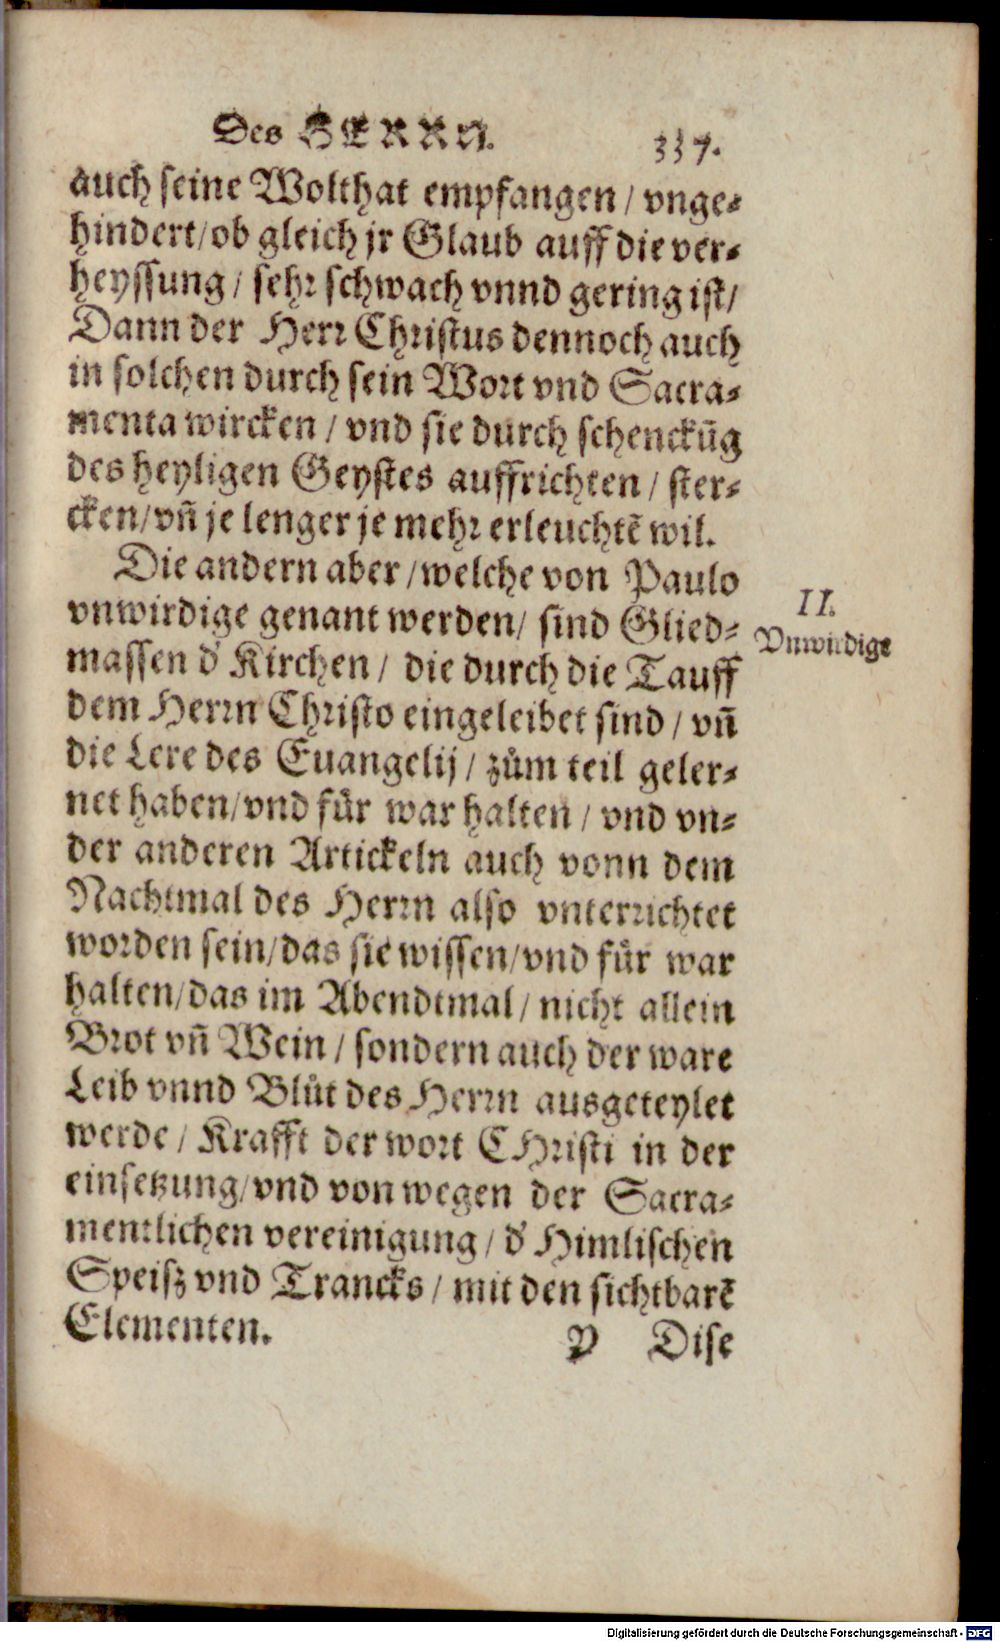 Des HERRN. 337.
auch seine Wolthat empfangen / vnge⸗
hindert/ob gleich jr Glaub auff die ver⸗
heyssung / sehr schwach vnnd gering ist/
Dann der Herr Christus dennoch auch
in solchen durch sein Wort vnd Sacra⸗
menta wircken / vnd sie durch schenckũg
des heyligen Geystes auffrichten / ster⸗
cken/vñ je lenger je mehr erleuchtẽ wil.
Die andern aber /welche von Paulo
vnwirdige genant werden/ sind Glied⸗
II.
Vnwirdige
massen d' Kirchen / die durch die Tauff
dem Herrn Christo eingeleibet sind / vñ
die Lere des Euangelij / zům teil geler⸗
net haben/vnd fůr war halten / vnd vn⸗
der anderen Artickeln auch vonn dem
Nachtmal des Herrn also vnterrichtet
worden sein/das sie wissen/vnd fůr war
halten/das im Abendtmal / nicht allein
Brot vñ Wein / sondern auch der ware
Leib vnnd Blůt des Herrn ausgeteylet
werde / Krafft der wort CHristi in der
einsetzung/vnd von wegen der Sacra⸗
mentlichen vereinigung / d' Himlischen
Speisz vnd Trancks / mit den sichtbarẽ
Elementen.
P Dise
Digitalisierung gefördert durch die Deutsche Forschungsgemeinschaft - DFG